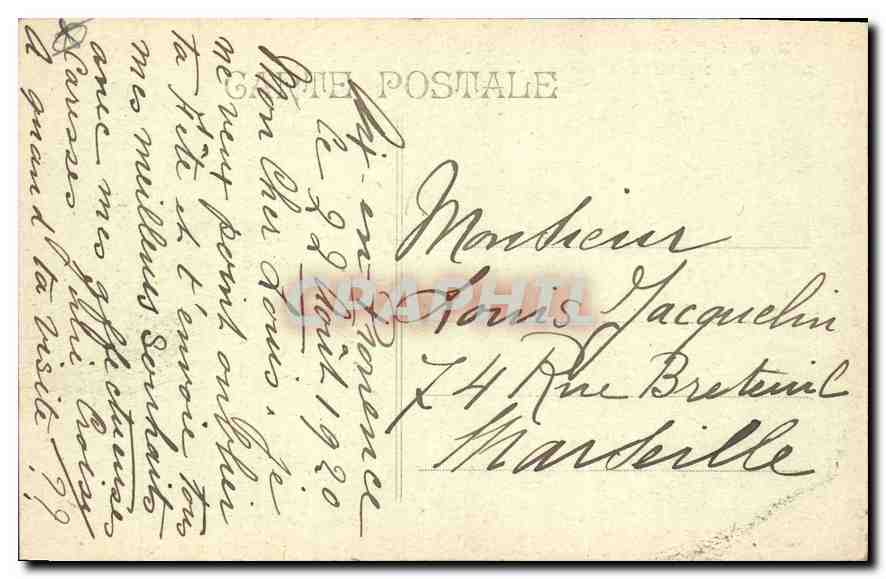 CARTE POSTALE
Aix-en-Provence
le 22 Août 1920
Mon Cher Louis. Je
ne veux point oublier
ta fête et t'envoie tous
mes meilleurs souhaits
avec mes affectueuses
Caresses Julie Croisy
à quand ta visite??
Monsieur
Louis Jacquelin
74 Rue Breteuil
Marseille
CARTE
GRAPHIL